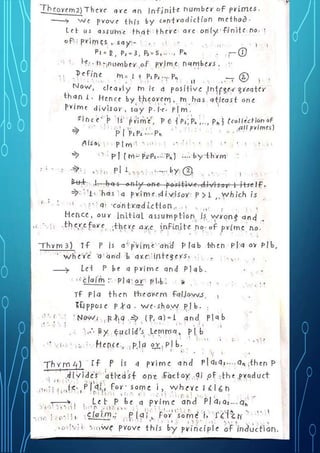 Theorem 2) There are an infinite number of primes.
→ We prove this by contradiction method.
Let us assume that there are only finite no.
of primes, say
P₁ = 2, P₂ = 3, P₃ = 5, ..., Pₙ —①
ie. n = number of prime numbers.
Define m = 1 + P₁P₂...Pₙ —②
Now, clearly m is a positive integer greater
than 1. Hence by theorem, m has atleast one
prime divisor, say p. i.e. P|m.
Since P is prime, P ∈ {P₁, P₂, ..., Pₙ} (collection of
all primes)
⇒ P | P₁P₂...Pₙ
Also, P|m
⇒ P | [m - P₁P₂...Pₙ] — by thrm
⇒ P | 1 — by ②
But 1 has only one positive divisor 1 itself.
⇒ 1 has a prime divisor P > 1, which is
a contradiction.
Hence, our initial assumption is wrong and
therefore there are infinite no. of prime no.
Thrm 3) If P is a prime and P|ab then P|a or P|b,
where a and b are integers.
→ Let P be a prime and P|ab.
claim: P|a or P|b
If P|a then theorem follows.
Suppose P∤a. we show P|b.
Now, P∤a ⇒ (P, a) = 1 and P|ab
∴ By Euclid's Lemma, P|b
Hence, P|a or P|b.
Thrm 4) If P is a prime and P|a₁a₂...aₙ then P
divides atleast one factor ai of the product
ie. P|ai, for some i, where 1≤i≤n
→ Let P be a prime and P|a₁a₂...aₙ
claim: P|ai, For some i, 1≤i≤n
we prove this by principle of induction.